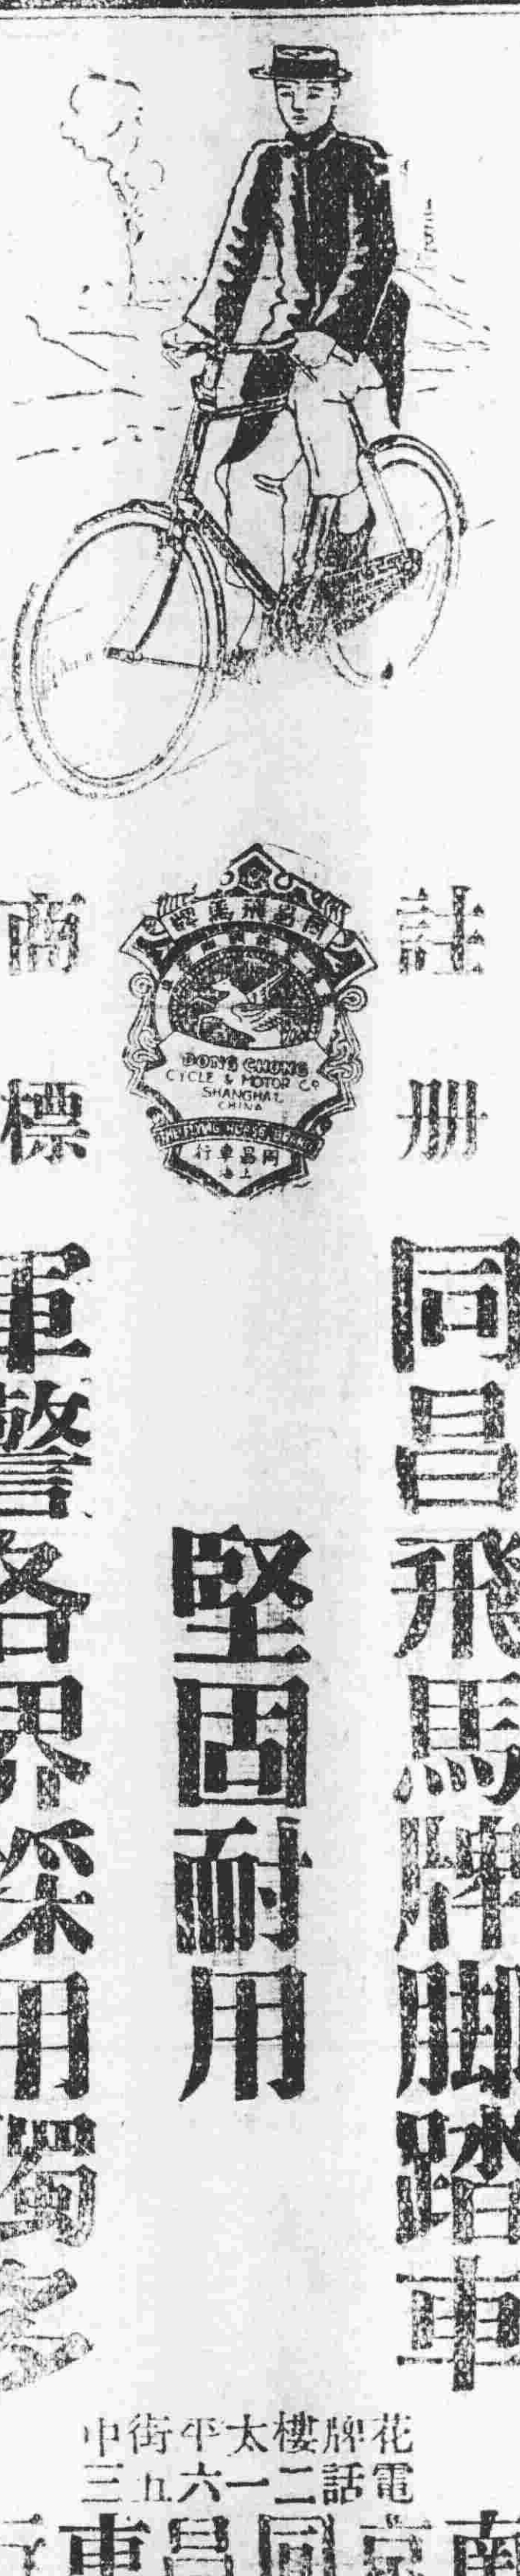 註册
商標
同昌飛馬牌
DONG CHONG
CYCLE & MOTOR Co
SHANGHAI,
CHINA
THE FLYING HORSE BRAND
同昌車行
上海
同昌飛馬牌脚踏車
堅固耐用
軍警各界採用獨多
花牌樓太平街中
電話二一六五三
南京同昌車行